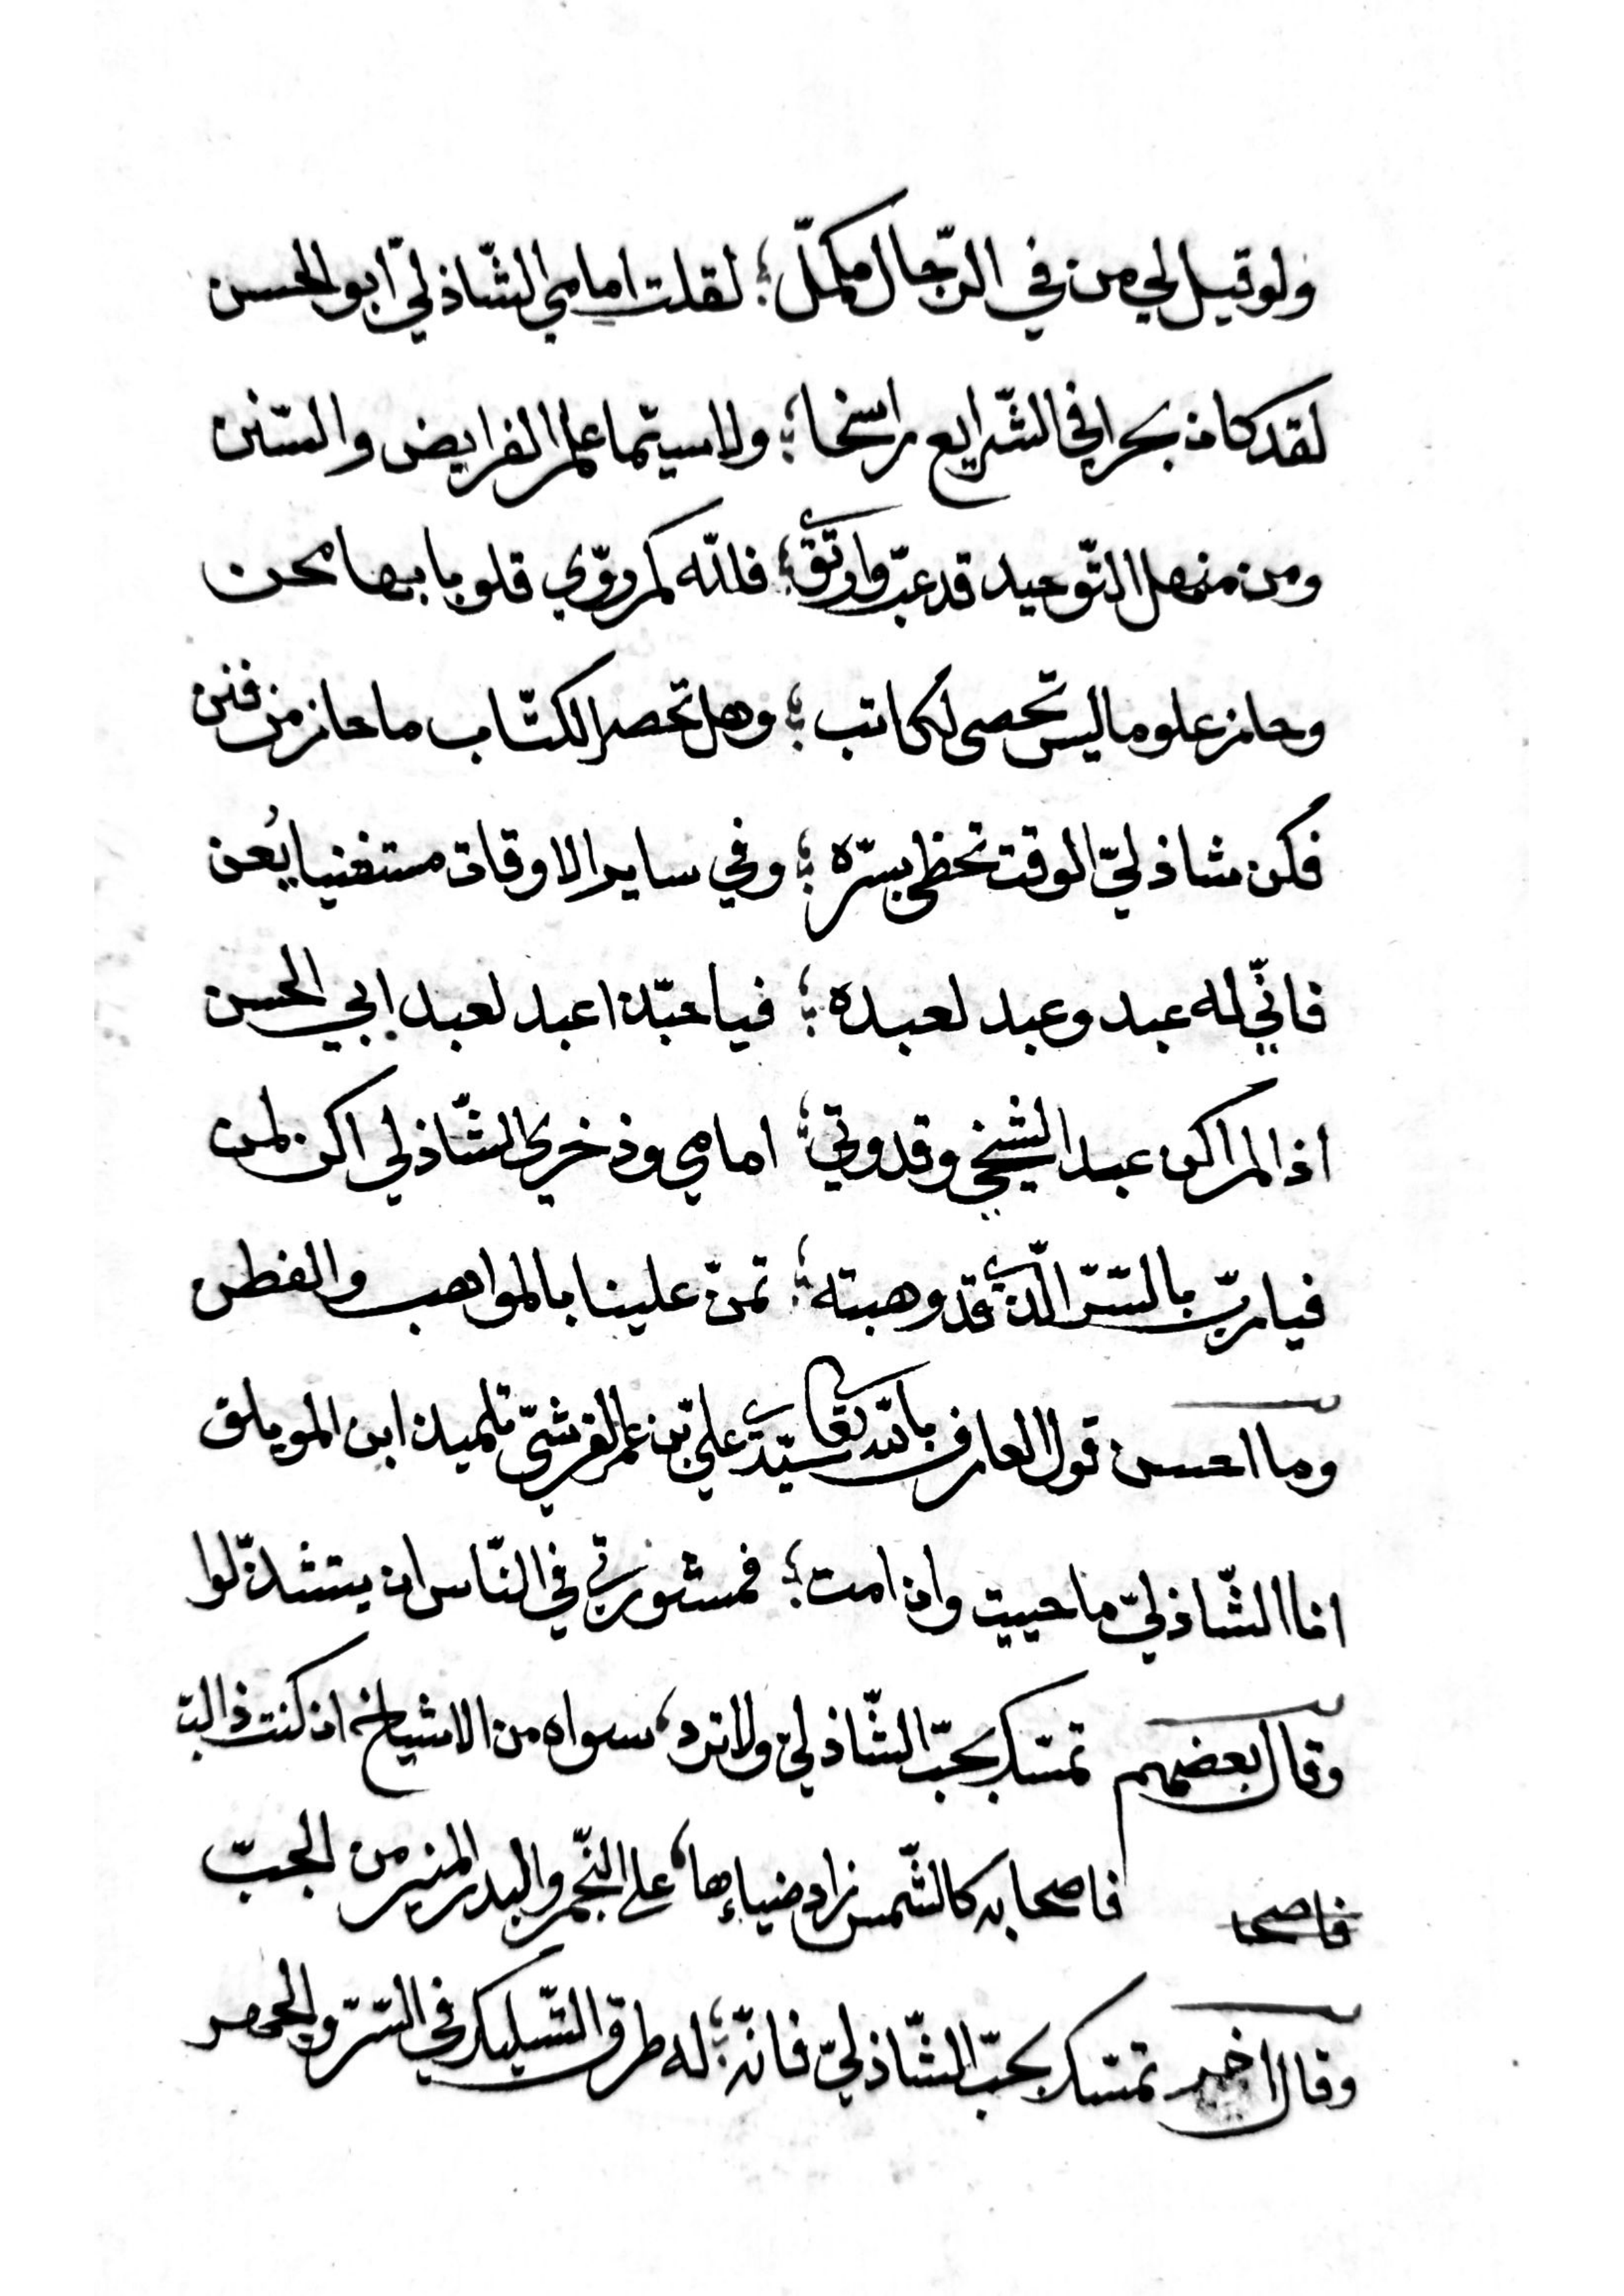 ولو قيل لي من في الرّجال مكمّل ؛ لقلت امامي الشّاذليّ ابو الحسن
لقد كان بحرا في الشّرايع راسخا ؛ ولا سيّما علم الفرايض والسّنن
ومن منهل التّوحيد قد عبّ وارتوى ؛ فللّه كم روّى قلوبا بها محن
وحاز علوما ليس تحصى لكاتب ؛ وهل تحصر الكتّاب ما حاز من فنن
فكن شاذليّ الوقت تحظى بسرّه ؛ وفي ساير الاوقات مستغنيا بُعن
فانّي له عبد وعبد لعبده ؛ فيا حبّذا عبد لعبد ابي الحسن
اذا لم اكن عبدا لشيخي وقدوتي ؛ امامي وذخري الشّاذلي اكن لمن
فيا ربّ بالسّرّ الّذي قد وهبته ؛ تمنّ علينا بالمواهب والفطن
وما احسن قول العارف بالله تعالى سيّدي علي بن عمر القرشيّ تلميذ ابن المويلق
انا الشّاذليّ ما حييت وان امت ؛ فمشورتي في النّاس ان يتشذّلوا
وقال بعضهم تمسّك بحبّ الشّاذلي ولا ترد ، سواه من الاشياخ ان كنت ذا لبّ
فاصحابه كالشّمس زاد ضياءها ، على النّجم والبدر المنير من الحجبّ
وقال اخر تمسّك بحبّ الشّاذليّ فانّه ؛ له طرق التّسليك في السّرّ والجهر